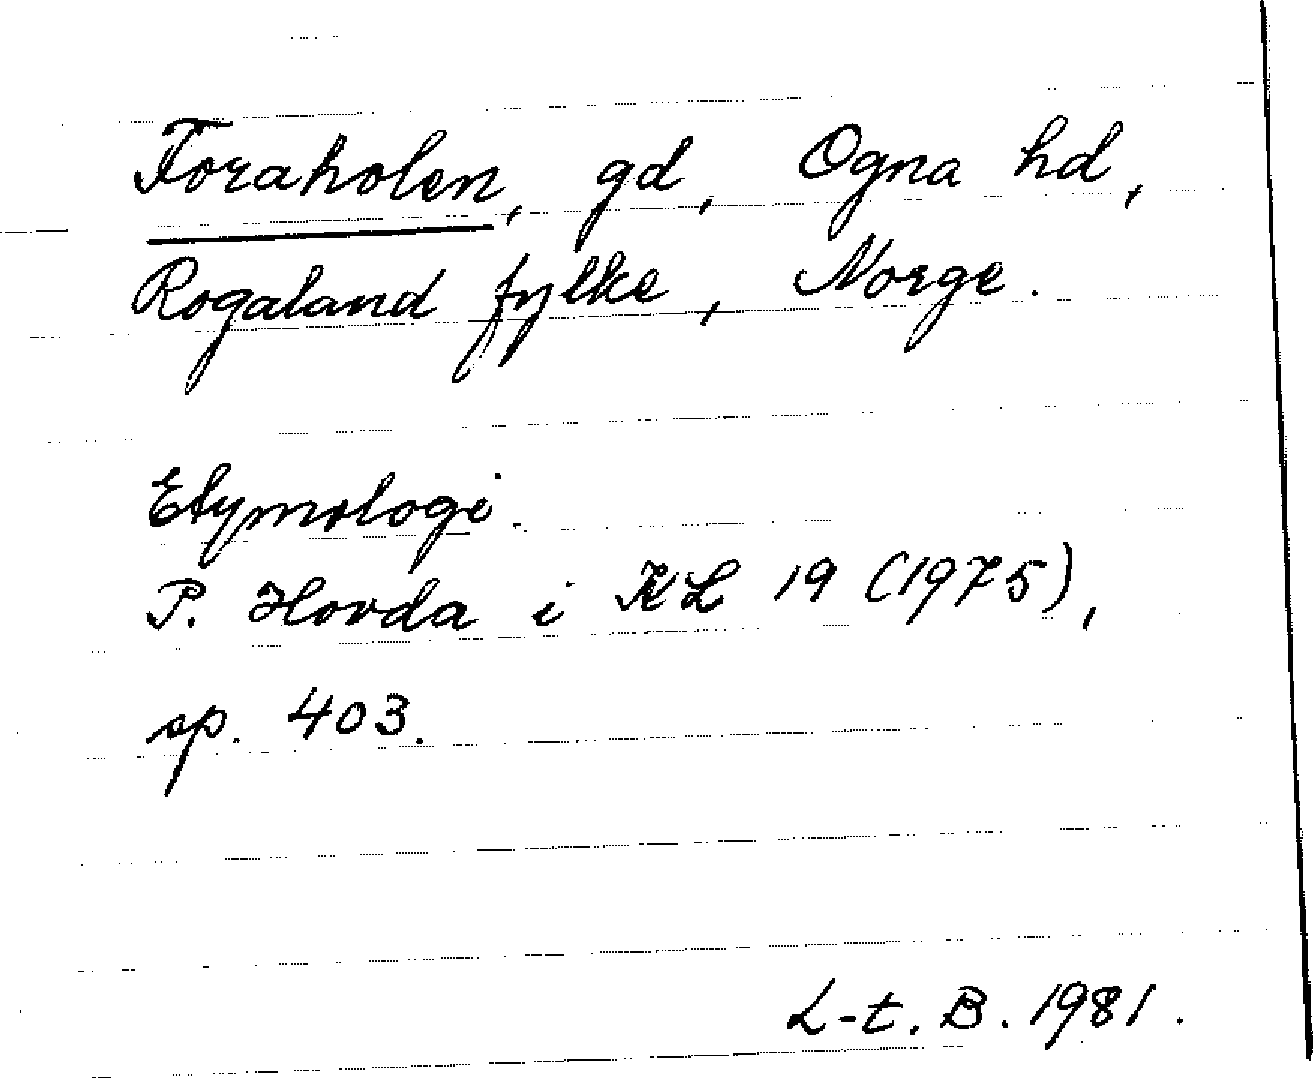 Foraholen, gd, Ogna hd,
Rogaland fylke, Norge.
Etymologi.
P. Hovda i KL 19 (1975),
sp. 403.
L-t. B. 1981.